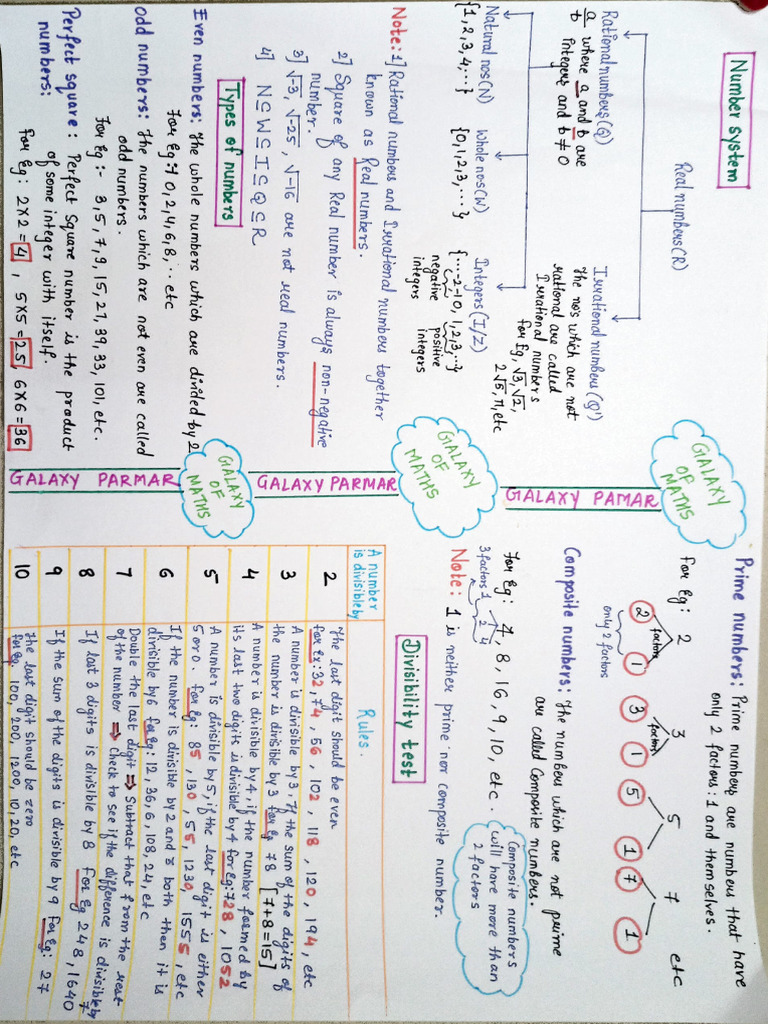 Number system
Real numbers (R)
Rational numbers (Q)
a/b where a and b are
integers and b ≠ 0
Irrational numbers (Q')
The no's which are not
rational are called
Irrational numbers
for Eg, √3, √2,
2√5, π, etc
Natural nos (N)
{1, 2, 3, 4, ...}
Whole nos (W)
{0, 1, 2, 3, ...}
Integers (I/Z)
{...-2 -1 0, 1, 2, 3, ...}
negative integers
positive integers
Note: 1] Rational numbers and Irrational numbers together
known as Real numbers.
2] Square of any Real number is always non-negative
number.
3] √-3, √-25, √-16 are not real numbers.
4] N ⊆ W ⊆ I ⊆ Q ⊆ R
Types of numbers
Even numbers: The whole numbers which are divided by 2
For Eg:- 0, 2, 4, 6, 8, ... etc
Odd numbers: The numbers which are not even are called
odd numbers.
For Eg:- 3, 5, 7, 9, 15, 27, 39, 33, 101, etc.
Perfect square numbers: Perfect Square number is the product
of some integer with itself.
For Eg: 2×2=4, 5×5=25, 6×6=36
GALAXY OF MATHS
GALAXY PAMAR
GALAXY OF MATHS
GALAXY PARMAR
GALAXY OF MATHS
GALAXY PARMAR
Prime numbers: Prime numbers are numbers that have
only 2 factors: 1 and themselves.
for Eg: 2 3 5 7 etc
factors factors
2 1 3 1 5 1 7 1
only 2 factors
Composite numbers: The numbers which are not prime
are called Composite numbers.
For Eg: 4, 8, 16, 9, 10, etc.
3 factors 1 2 4
Composite numbers
will have more than
2 factors
Note: 1 is neither prime nor composite number.
Divisibility test
A number is divisible by
Rules.
2 The last digit should be even
for Ex: 32, 74, 56, 102, 118, 120, 194, etc
3 A number is divisible by 3, If the sum of the digits of
the number is divisible by 3 for eg 78 [7+8=15]
4 A number is divisible by 4, if the number formed by
its last two digits is divisible by 4 for eg: 728, 1052
5 A number is divisible by 5, if the last digit is either
5 or 0. for Eg: 85, 130, 55, 1230, 1555, etc
6 If the number is divisible by 2 and 3 both then it is
divisible by 6 for Eg: 12, 36, 6, 108, 24, etc
7 Double the last digit ⇒ Subtract that from the rest
of the number ⇒ Check to see if the difference is divisible by 7
8 If last 3 digits is divisible by 8 for Eg 248, 1640
9 If the sum of the digits is divisible by 9 for Eg: 27
10 The last digit should be zero
for Eg, 100, 200, 1200, 10, 20, etc